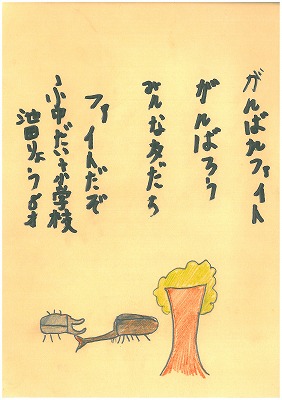 がんばれファイト
がんばろう
みんな友だち
ファイトだぞ
小中だい学校
池田りょう8才